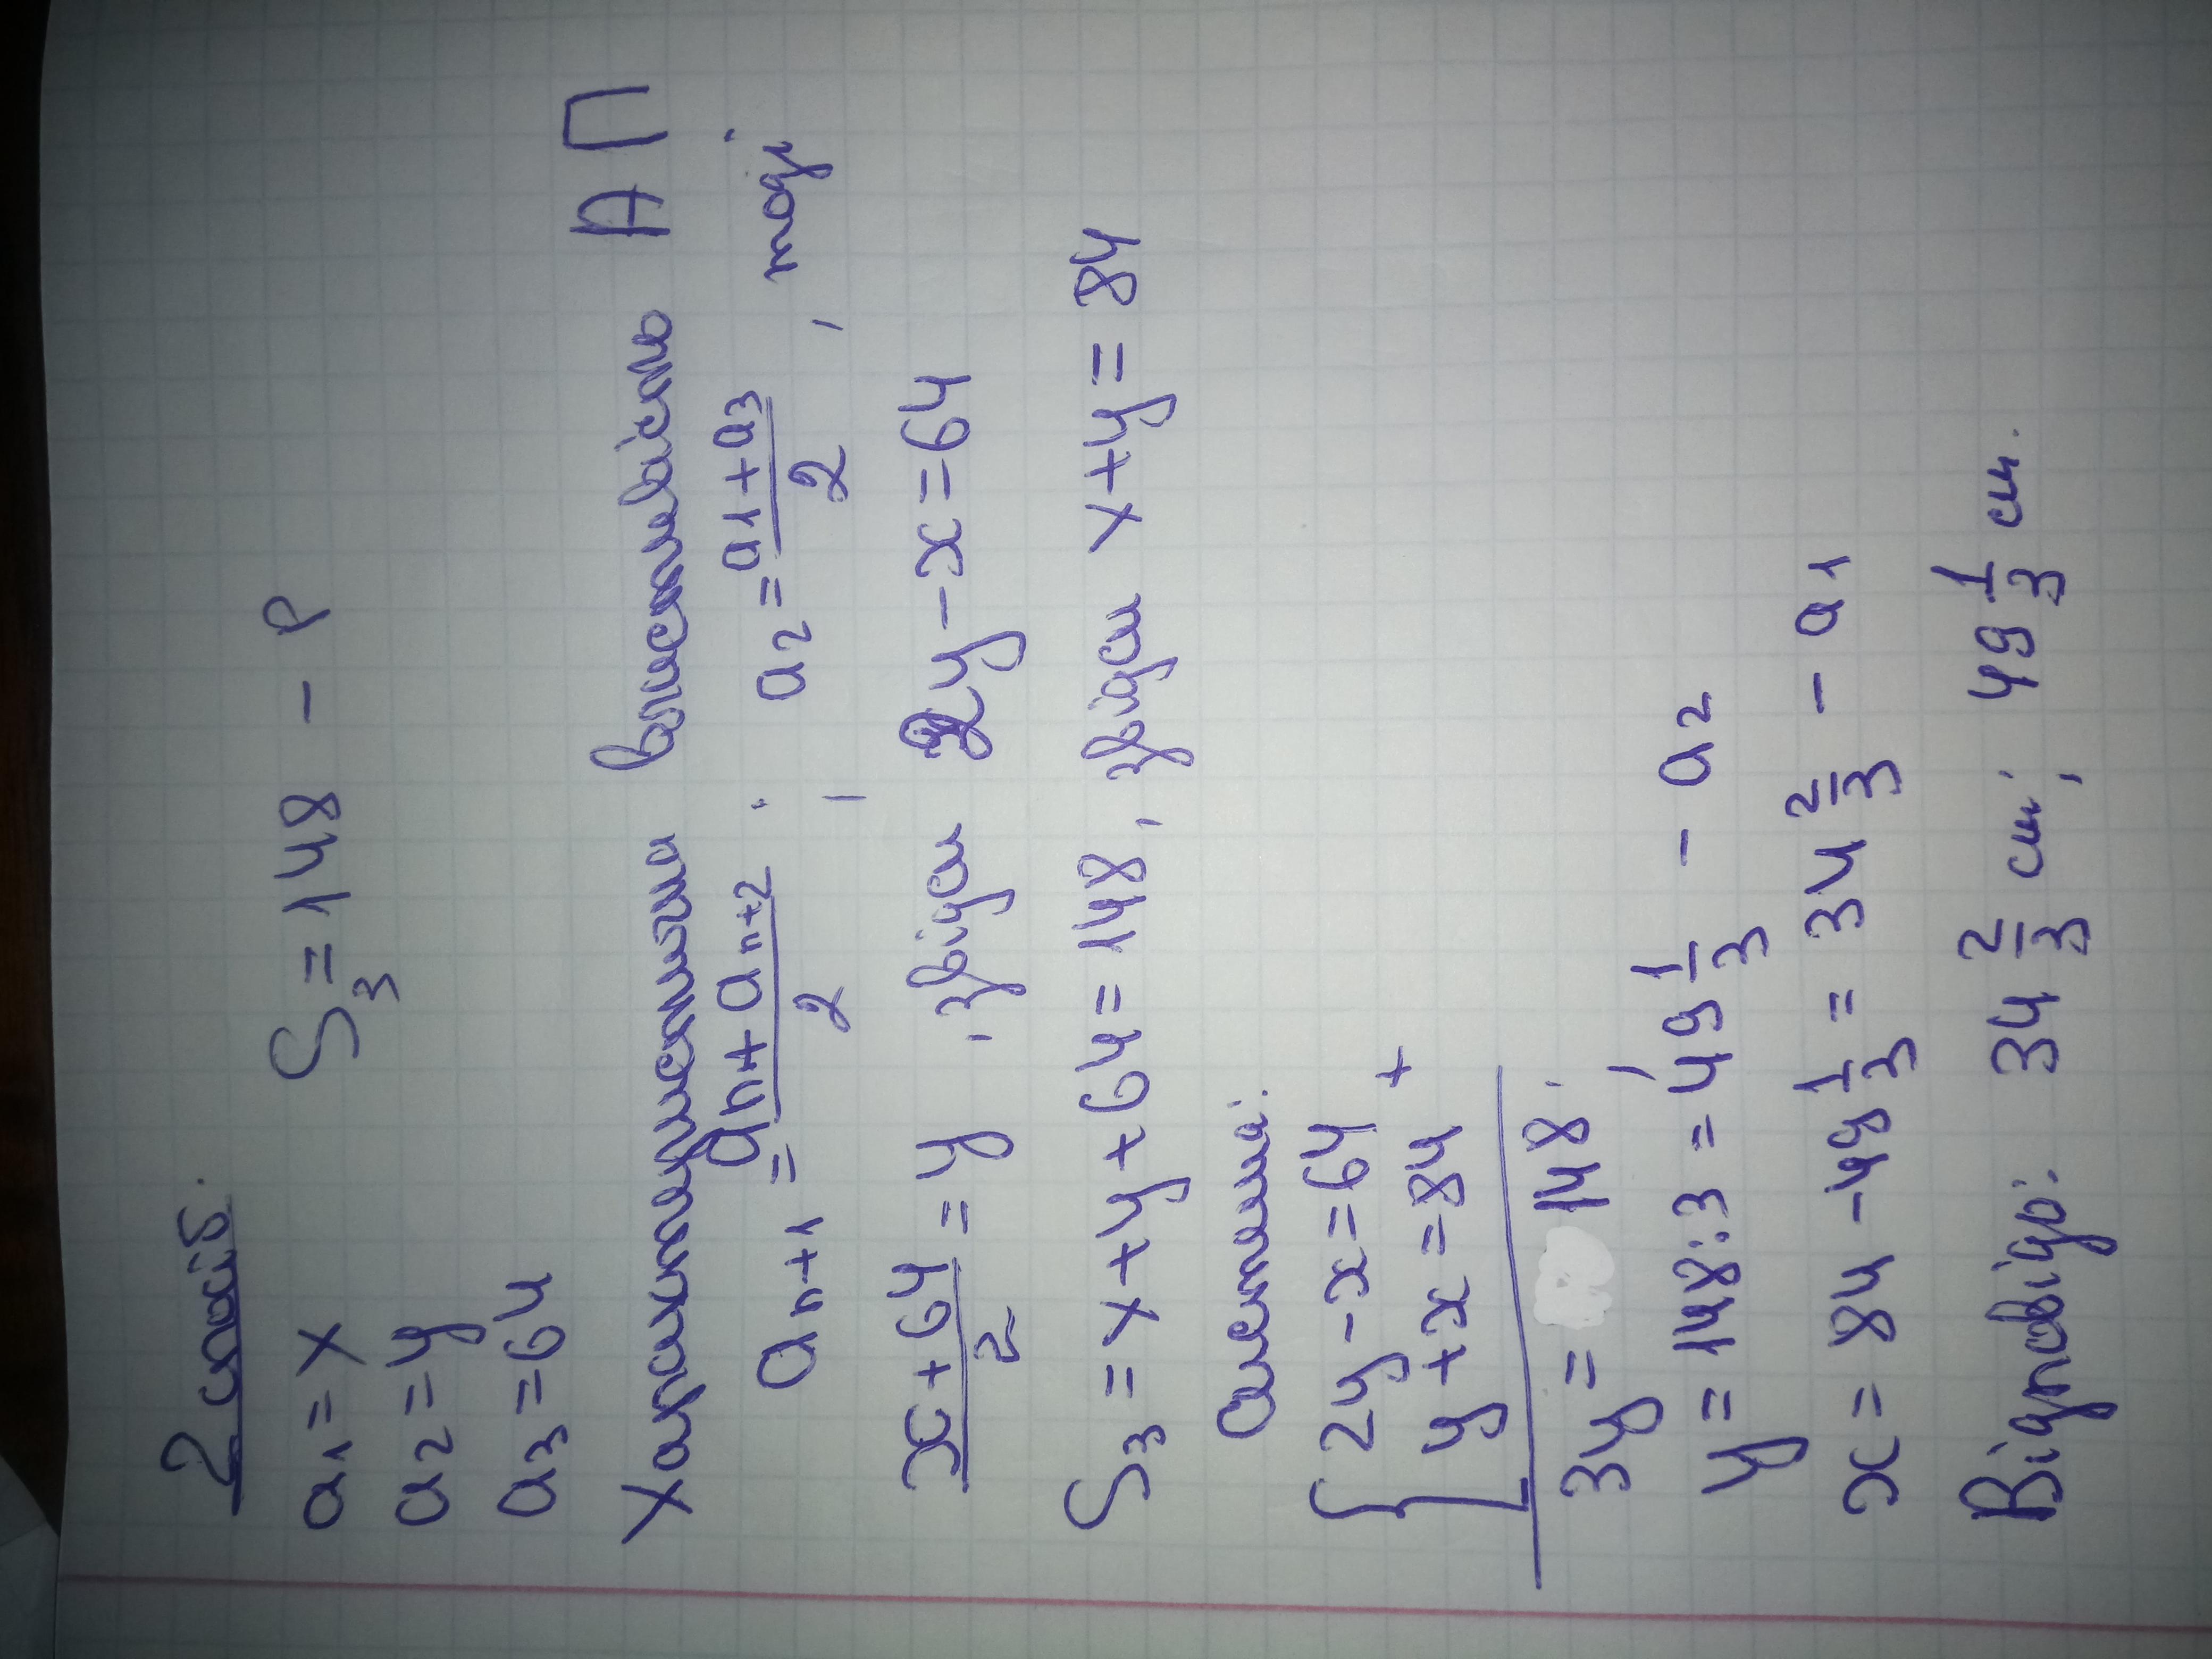 2 спосіб.
a₁ = x S₃ = 148 – P
a₂ = y
a₃ = 64
Характеристична властивість АП
aₙ₊₁ = (aₙ + aₙ₊₂)/2 ; a₂ = (a₁ + a₃)/2 , тоді
(x + 64)/2 = y , звідси 2y – x = 64
S₃ = x + y + 64 = 148, звідси x + y = 84
система:
{ 2y – x = 64 +
y + x = 84
3y = 148;
y = 148 : 3 = 49 1/3 – a₂
x = 84 – 49 1/3 = 34 2/3 – a₁
Відповідь: 34 2/3 см; 49 1/3 см.